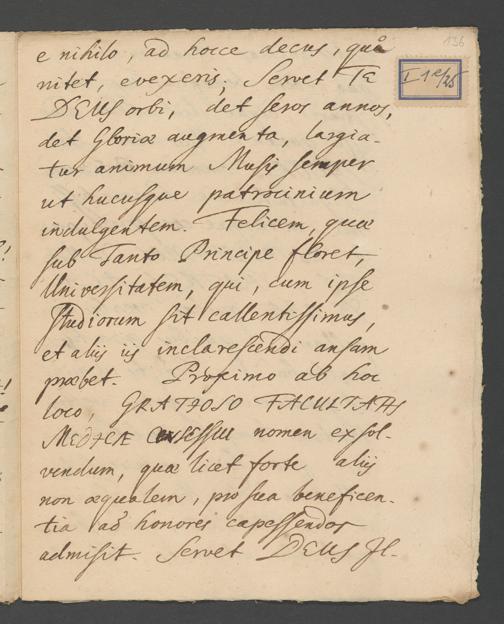 136
I 1 e/25
e nihilo, ad hocce decus, quô
nitet, evexeris. Servet TE
DEUS orbi, det seros annos,
det Gloriæ augmenta, largia-
tur animum Musis semper
ut hucusque patrocinium
indulgentem. Felicem, quæ
sub Tanto Principe floret,
Universitatem, qui, cum ipse
studiorum sit callentissimus,
et aliis iis inclarescendi ansam
præbet. Proximo ab hoc
loco, GRATIOSO FACULTATIS
MEDICÆ nomen exsol-
vendum, quæ licet forte aliis
non æqualem, pro sua beneficen-
tia ad honores capessendos
admisit. Servet DEUS Il-